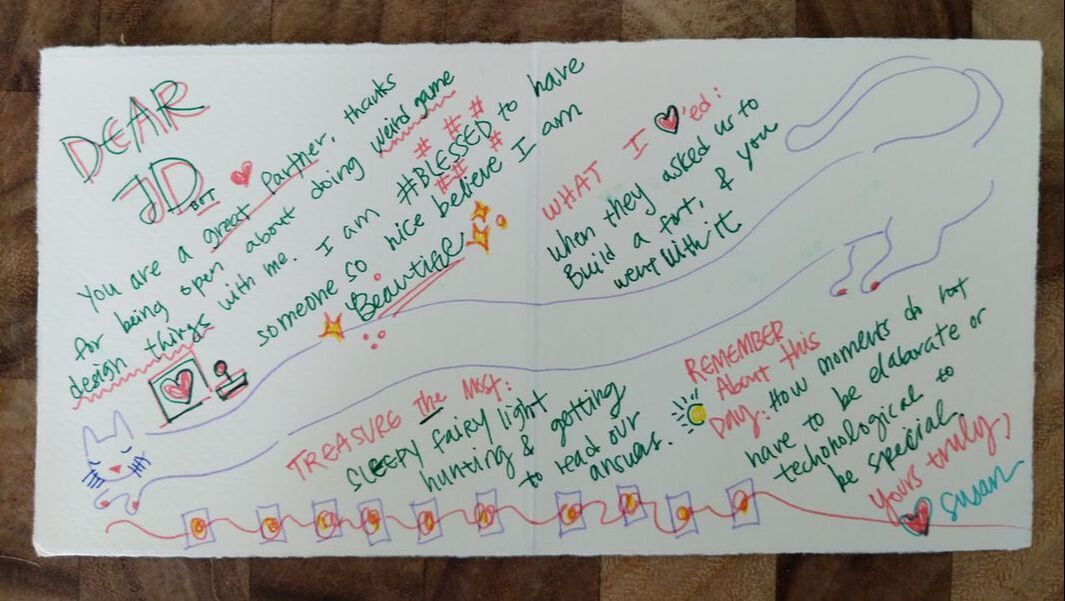 DEAR
JD BOT
You are a great partner, thanks
for being open about doing weird game
design things with me. I am #BLESSED to have
someone so nice believe I am
Beautiful
WHAT I ♥'ed:
when they asked us to
Build a fort, & you
were with it.
TREASURE the Most:
sleepy fairy light
hunting & getting
to read our
answers.
REMEMBER
About this
Day: How moments do not
have to be elaborate or
techonological to
be special
yours truly,
Susan